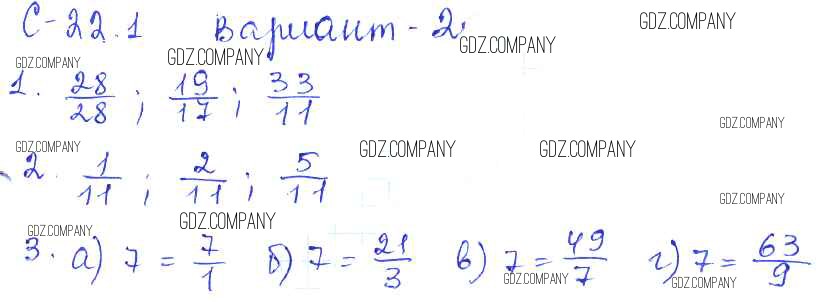 С-22.1 Вариант-2. GDZ.COMPANY
GDZ.COMPANY GDZ.COMPANY GDZ.COMPANY
1. 28/28 ; 19/17 ; 33/11
GDZ.COMPANY
GDZ.COMPANY GDZ.COMPANY GDZ.COMPANY
2. 1/11 ; 2/11 ; 5/11
GDZ.COMPANY
GDZ.COMPANY GDZ.COMPANY
3. а) 7 = 7/1 б) 7 = 21/3 в) 7 = 49/7 г) 7 = 63/9
GDZ.COMPANY GDZ.COMPANY